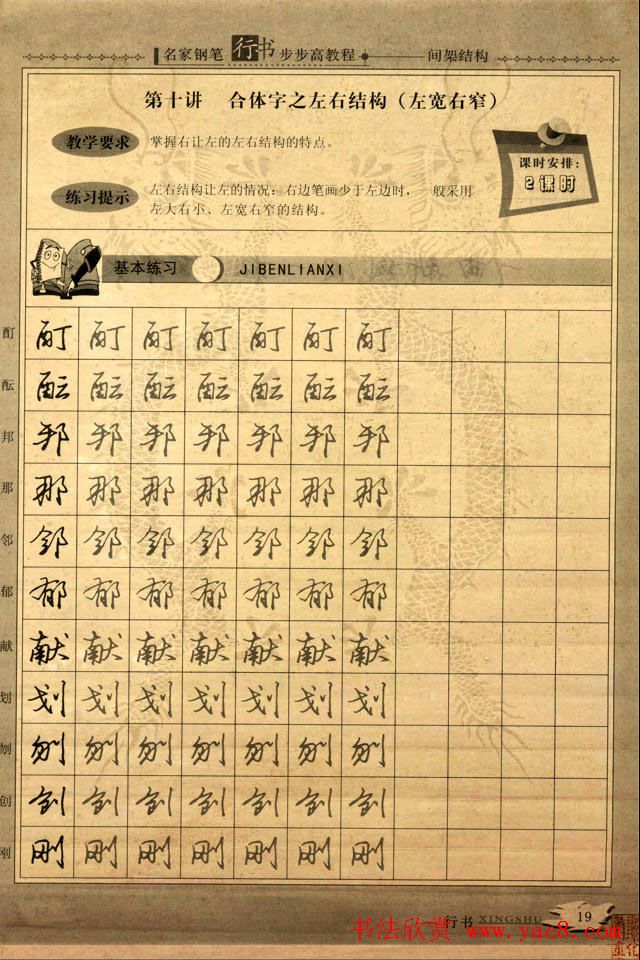 名家钢笔行书步步高教程 间架结构
第十讲 合体字之左右结构（左宽右窄）
教学要求 掌握右让左的左右结构的特点。
课时安排：
2课时
练习提示 左右结构让左的情况：右边笔画少于左边时，一般采用
左大右小、左宽右窄的结构。
基本练习 JIBENLIANXI
酊 酊 酊 酊 酊 酊 酊 酊
酝 酝 酝 酝 酝 酝 酝 酝
邦 邦 邦 邦 邦 邦 邦 邦
那 那 那 那 那 那 那 那
邻 邻 邻 邻 邻 邻 邻 邻
郁 郁 郁 郁 郁 郁 郁 郁
献 献 献 献 献 献 献 献
划 划 划 划 划 划 划 划
刎 刎 刎 刎 刎 刎 刎 刎
创 创 创 创 创 创 创 创
刚 刚 刚 刚 刚 刚 刚 刚
行书 XINGSHU 19
书法欣赏 www.yac8.com